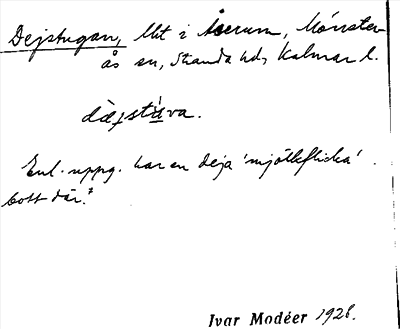 Dejstugan, lht i Åserum, Mönster-
ås sn, Stranda hd, Kalmar l.
dæjstùva.
Enl. uppg. har en deja 'mjölkflicka'
bott där.?
Ivar Modéer 1928.